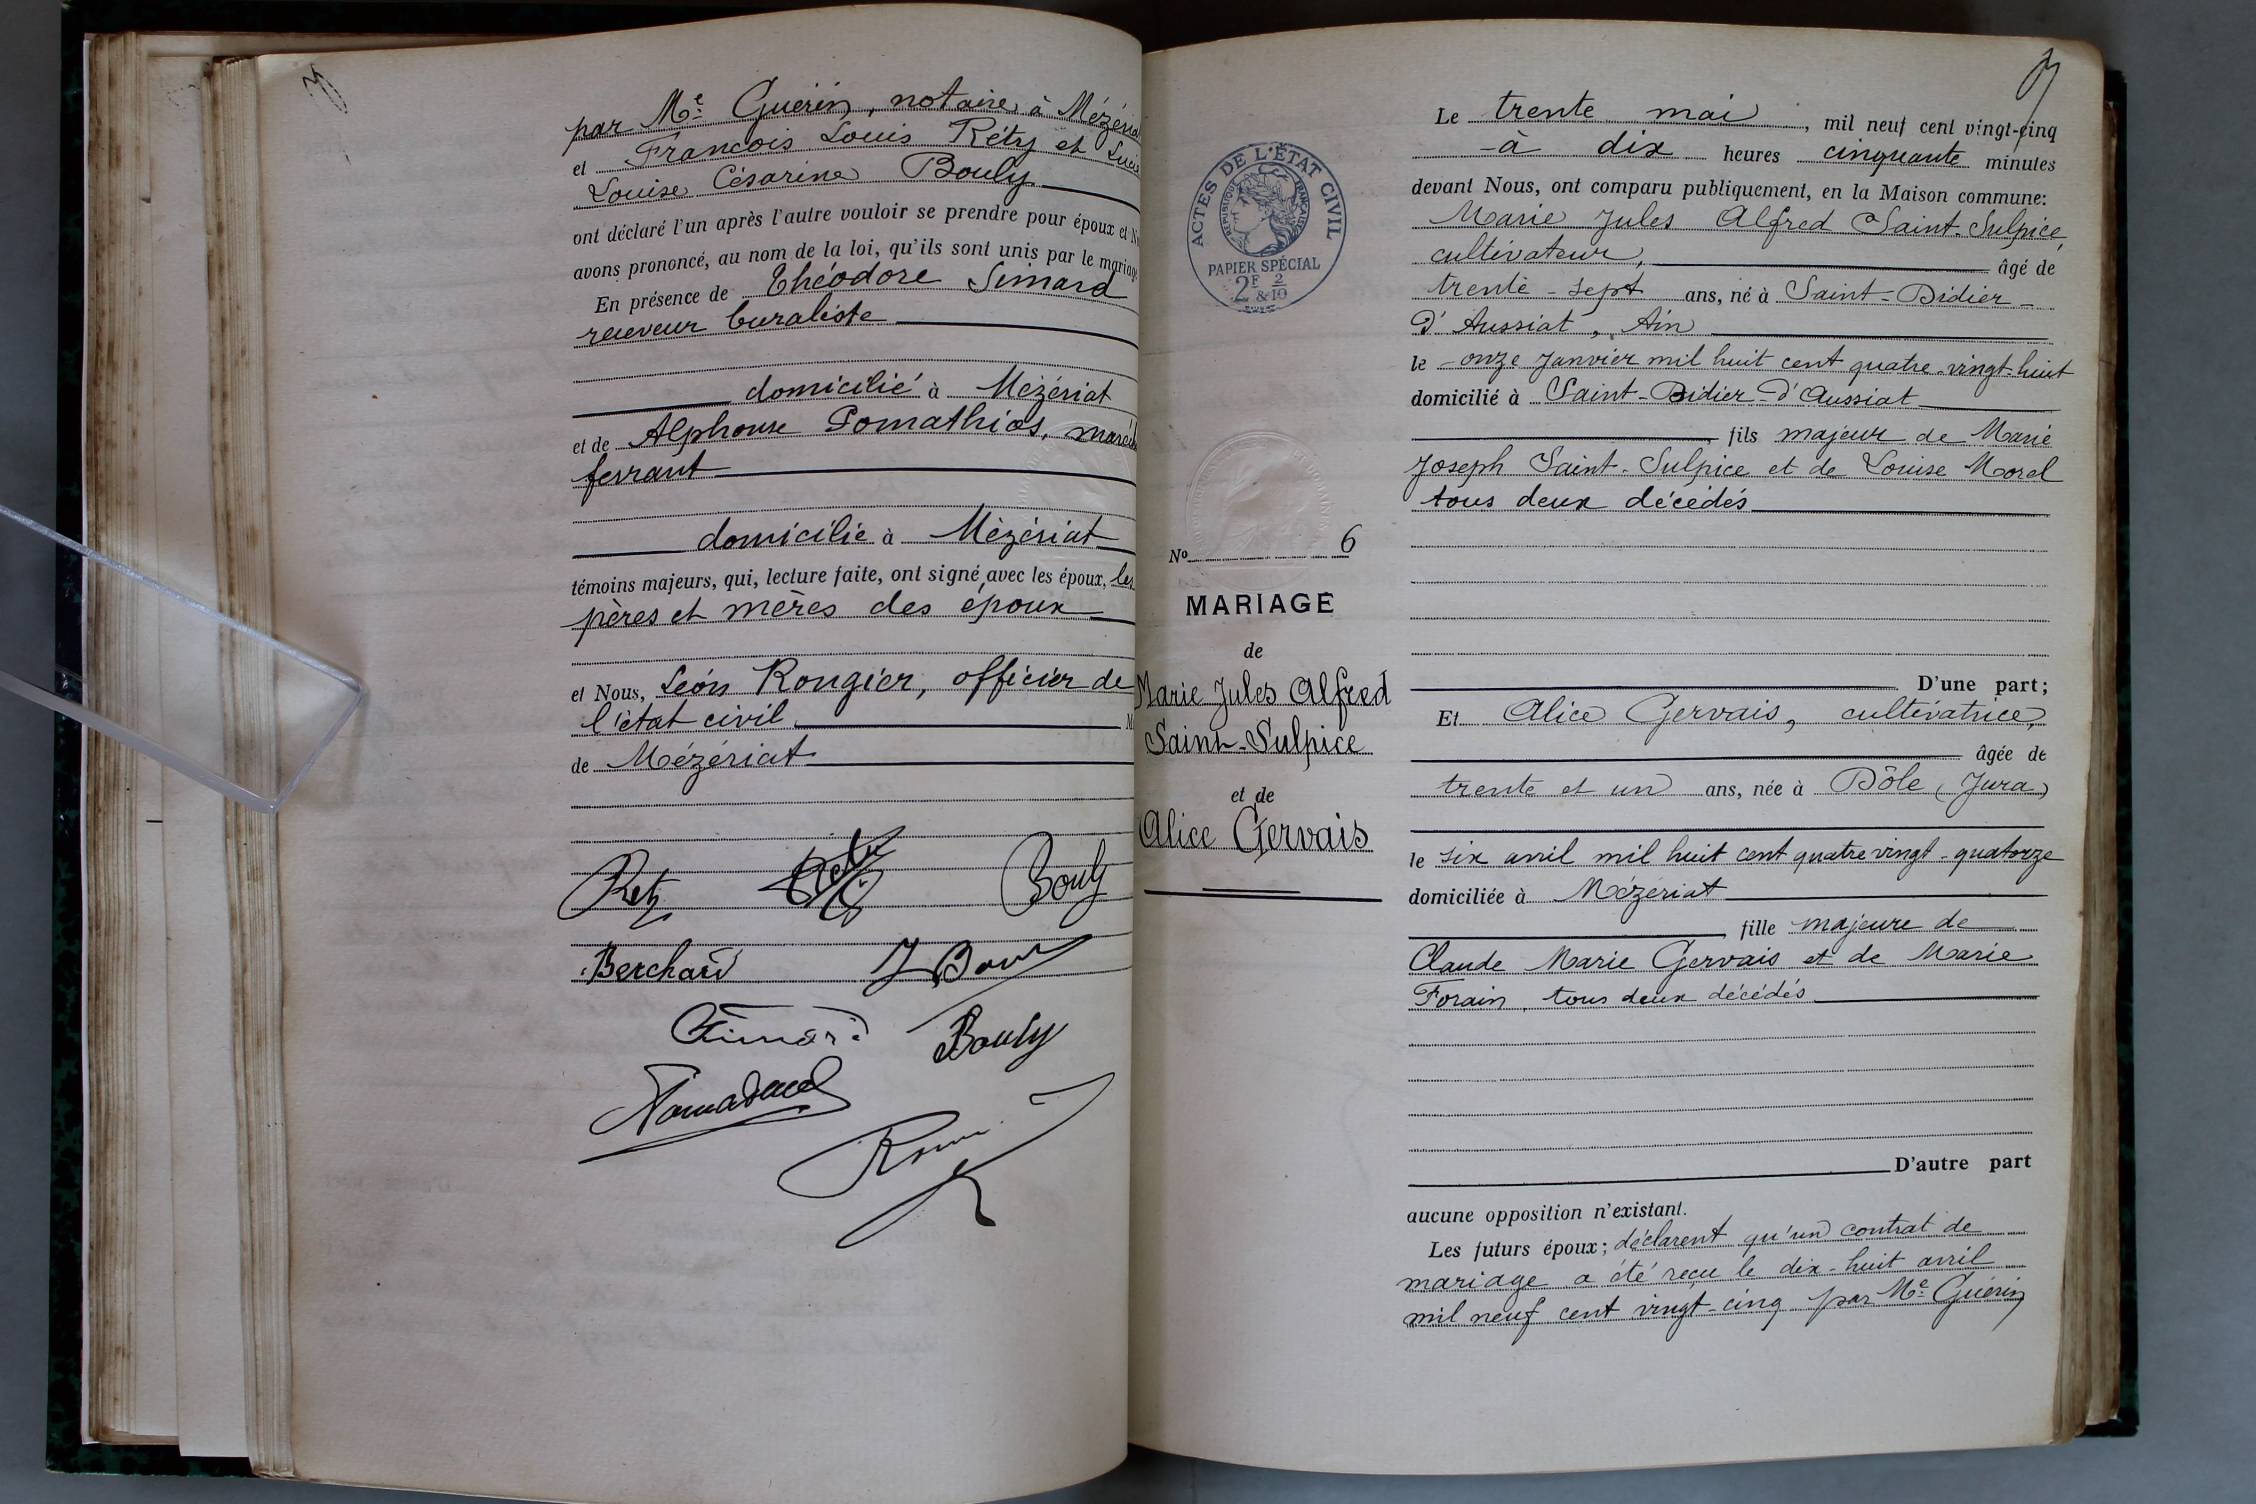 par Me Guérin, notaire à Mézéria
et François Louis Réty et Luci
Louise Césarine Bouly
ont déclaré l'un après l'autre vouloir se prendre pour époux et N
avons prononcé, au nom de la loi, qu'ils sont unis par le mariage
En présence de Théodore Simard
receveur buraliste
domicilié à Mézériat
et de Alphonse Pomathios, maréch
ferrant
domicilié à Mézériat
témoins majeurs, qui, lecture faite, ont signé avec les époux, les
pères et mères des époux
et Nous, Léon Rongier, officier de
l'état civil M
de Mézériat
Rety Réty Bouly
Berchard J Bour
Simard Bouly
ACTES DE L'ÉTAT CIVIL
RÉPUBLIQUE FRANÇAISE
PAPIER SPÉCIAL
2F & 2/10
No 6
MARIAGE
de
Marie Jules Alfred
Saint-Sulpice
et de
Alice Gervais
Le trente mai, mil neuf cent vingt-cinq
à dix heures cinquante minutes
devant Nous, ont comparu publiquement, en la Maison commune:
Marie Jules Alfred Saint-Sulpice,
cultivateur, âgé de
trente-sept ans, né à Saint-Didier-
D'Aussiat, Ain
le onze janvier mil huit cent quatre-vingt-huit
domicilié à Saint-Didier-d'Aussiat
fils majeur de Marie
Joseph Saint-Sulpice et de Louise Morel
tous deux décédés
D'une part;
Et Alice Gervais, cultivatrice,
âgée de
trente et un ans, née à Dôle (Jura)
le six avril mil huit cent quatre vingt-quatorze
domiciliée à Mézériat
fille majeure de
Claude Marie Gervais et de Marie
Forain, tous deux décédés
D'autre part
aucune opposition n'existant.
Les futurs époux; déclarent qu'un contrat de
mariage a été reçu le dix-huit avril
mil neuf cent vingt-cinq par Me Guérin